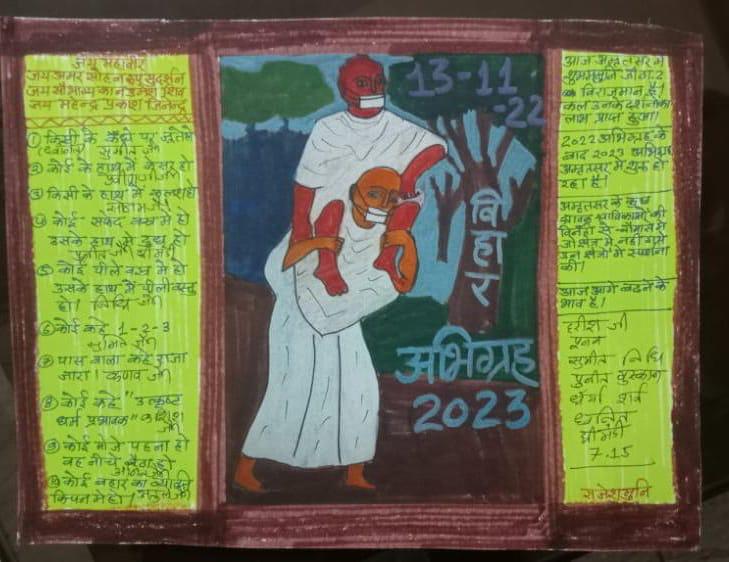 जय महावीर
जय अमर सोहन रूप सुदर्शन
जय सौभाग्य का नंद उमेश शिव
जय महेन्द्र प्रकाश जिनेन्द्र
① किसी के कंधे पर
सुमीत जी
② कोई के हाथ में केसर हो
③ किसी के हाथ में कलश हो
④ कोई सफेद वस्त्र में हो
उसके हाथ में दूध हो
पुनीत जी
⑤ कोई पीले वस्त्र में हो
उसके हाथ में पीली वस्तु
हो। निधि जी
⑥ कोई कहे 1-2-3
⑦ पास वाला कहे राजा
जारा। जी
⑧ कोई कहे "उत्कृष्ट
धर्म प्रभावक" जी
⑨ कोई मोजे पहना हो
वह नीचे बैठा हो
कोई बहार का व्यक्ति
किचन में हो।
13-11
-22
विहार
अभिग्रह
2023
आज अमृतसर में
विराजमान है।
कल उनके दर्शन का
लाभ प्राप्त हुआ।
2022 अभिग्रह के
बाद 2023 अभिग्रह
अमृतसर में शुरू हो
रहा है।
अमृतसर के कुछ
श्रावक श्राविकाओं की
विनती से चौमासे में
जो क्षेत्र में नहीं
उन क्षेत्रों में स्पर्शना
की।
आज आगे बढ़ने के
भाव है।
हरीश जी
पूनम
सुमीत निधि
पुनीत मुस्कान
धैर्या शौर्य
7.15
राजेशमुनि